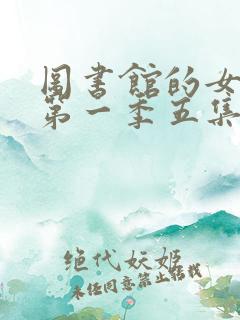 圖書館的女
第一季五集
绝代妖姬
未经同意禁止转载